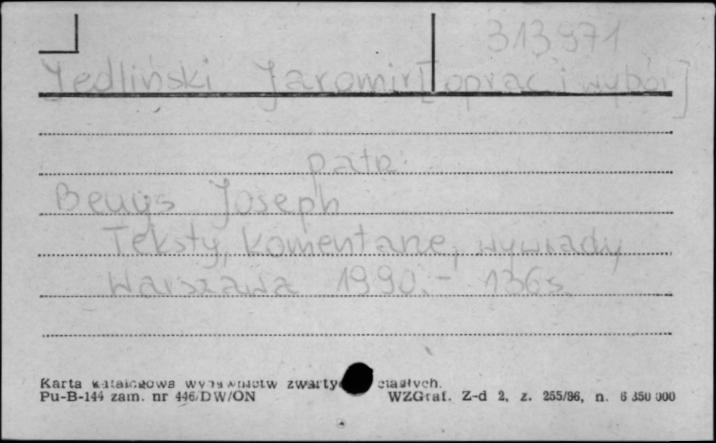 313971
Jedliński Jaromir [oprac i wybór]
patrz:
Beuys Joseph
Teksty, komentarze, wywiady
Warszawa 1990.- 136s.
Karta katalogowa wydawnictw zwartych ciągłych.
Pu-B-144 zam. nr 446/DW/ON WZGraf. Z-d 2, z. 255/86, n. 6 350 000